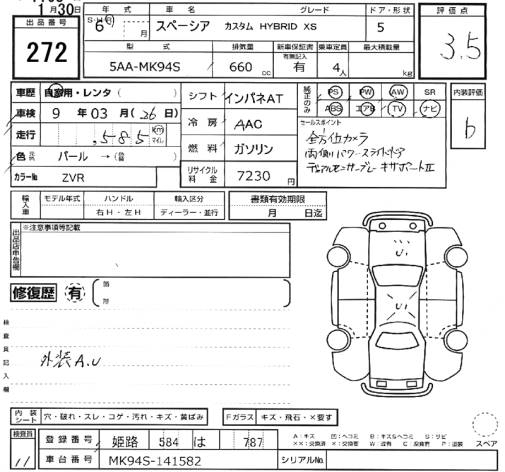 11月30日
出品番号
272
年式 車名 グレード ドア・形状
S・H・R 6 月 スペーシア カスタム HYBRID XS 5
型式 排気量 新車保証書 乗車定員 最大積載量
有無記入
5AA-MK94S 660 cc 有 4人 kg
評価点
3.5
車歴 自家用・レンタ( )
車検 9年03月(26日)
走行 58.5 km マイル
色 パール→( )
カラーNo ZVR
シフト インパネAT
冷房 AAC
燃料 ガソリン
リサイクル料金 7230円
純正のみ PS PW AW SR
ABS エアB TV ナビ
セールスポイント
全方位カメラ
両側パワースライドドア
デュアルセンサーブレーキサポートⅡ
内装評価
b
輸入車 モデル年式 ハンドル 輸入区分
右H・左H ディーラー・並行
書類有効期限
月 日迄
出品店申告欄
※注意事項等記載
修復歴 有 箇所
検査員記入欄
外装A.U
U1
U1
内装シート 穴・破れ・スレ・コゲ・汚れ・キズ・黄ばみ
Fガラス キズ・飛石・×要す
検査員
11
登録番号 姫路 584 は 787
車台番号 MK94S-141582 シリアルNo.
A:キズ E:ヘコミ B:キズ&ヘコミ S:サビ
××:交換済 ×:交換要 W:波有 C:腐食有 P:塗装
スペア